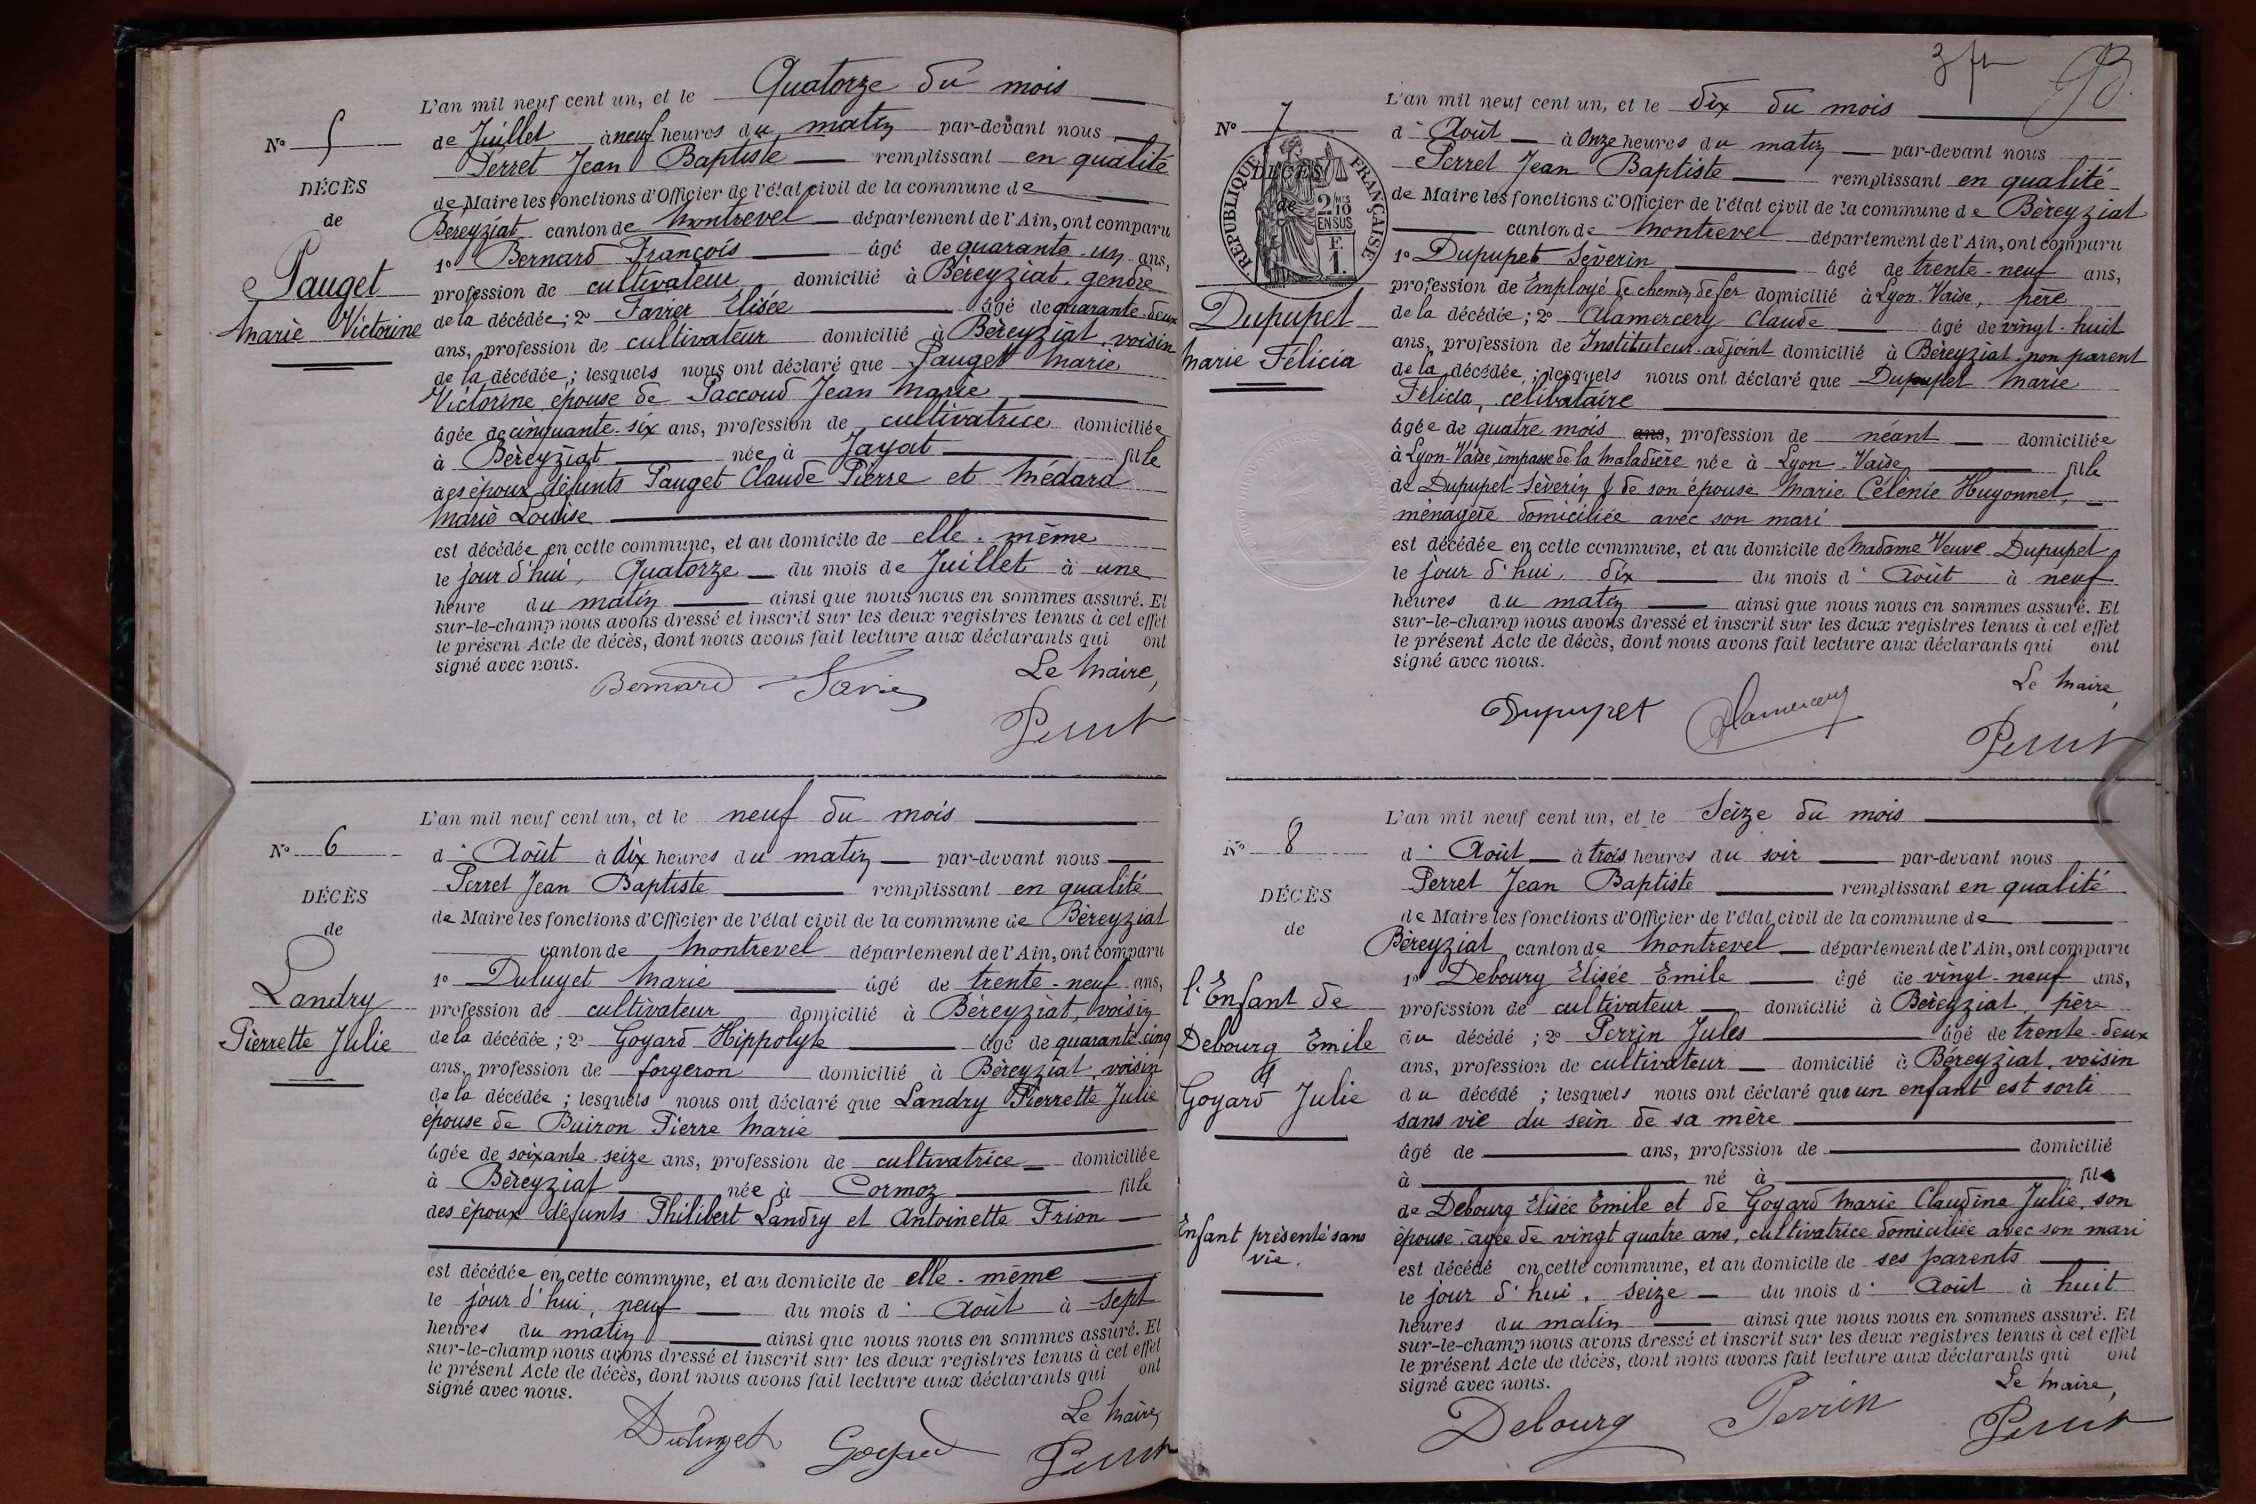 L'an mil neuf cent un, et le Quatorze du mois
de Juillet à neuf heures du matin par-devant nous
Perret Jean Baptiste remplissant en qualité
de Maire les fonctions d'Officier de l'état civil de la commune de
Béreyziat canton de Montrevel département de l'Ain, ont comparu
1º Bernard François âgé de quarante-un ans,
profession de cultivateur domicilié à Béreyziat, gendre
de la décédée ; 2º Favier Elisée âgé de quarante-deux
ans, profession de cultivateur domicilié à Béreyziat, voisin
de la décédée ; lesquels nous ont déclaré que Pauget Marie
Victorine épouse de Paccoud Jean Marie
âgée de cinquante-six ans, profession de cultivatrice domiciliée
à Béreyziat née à Jayat fille
des époux défunts Pauget Claude Pierre et Médard
Marie Louise
est décédée en cette commune, et au domicile de elle-même
le jour d'hui, Quatorze du mois de Juillet à une
heure du matin ainsi que nous nous en sommes assuré. Et
sur-le-champ nous avons dressé et inscrit sur les deux registres tenus à cet effet
le présent Acte de décès, dont nous avons fait lecture aux déclarants qui ont
signé avec nous.
Le Maire,
Bernard Favier
Perret
Nº 5
DÉCÈS
de
Pauget
Marie Victorine
L'an mil neuf cent un, et le neuf du mois
d'Août à dix heures du matin par-devant nous
Perret Jean Baptiste remplissant en qualité
de Maire les fonctions d'Officier de l'état civil de la commune de Béreyziat
canton de Montrevel département de l'Ain, ont comparu
1º Duluget Marie âgé de trente-neuf ans,
profession de cultivateur domicilié à Béreyziat, voisin
de la décédée ; 2º Goyard Hippolyte âgé de quarante-cinq
ans, profession de forgeron domicilié à Béreyziat, voisin
de la décédée ; lesquels nous ont déclaré que Landry Pierrette Julie
épouse de Buiron Pierre Marie
âgée de soixante-seize ans, profession de cultivatrice domiciliée
à Béreyziat née à Cormoz fille
des époux défunts Philibert Landry et Antoinette Frion
est décédée en cette commune, et au domicile de elle-même
le jour d'hui, neuf du mois d'Août à sept
heures du matin ainsi que nous nous en sommes assuré. Et
sur-le-champ nous avons dressé et inscrit sur les deux registres tenus à cet effet
le présent Acte de décès, dont nous avons fait lecture aux déclarants qui ont
signé avec nous.
Le Maire,
Duluget Goyard Perret
Nº 6
DÉCÈS
de
Landry
Pierrette Julie
L'an mil neuf cent un, et le dix du mois
d'Août à Onze heures du matin par-devant nous
Perret Jean Baptiste remplissant en qualité
de Maire les fonctions d'Officier de l'état civil de la commune de Béreyziat
canton de Montrevel département de l'Ain, ont comparu
1º Dupupet Séverin âgé de trente-neuf ans,
profession de Employé de chemin de fer domicilié à Lyon-Vaise, père
de la décédée ; 2º Alamercery Claude âgé de vingt-huit
ans, profession de Instituteur-adjoint domicilié à Béreyziat, non parent
de la décédée ; lesquels nous ont déclaré que Dupupet Marie
Félicia, célibataire
âgée de quatre mois ans, profession de néant domiciliée
à Lyon-Vaise, impasse de la Maladière née à Lyon-Vaise fille
de Dupupet Séverin & de son épouse Marie Célénie Huyonnet,
ménagère domiciliée avec son mari
est décédée en cette commune, et au domicile de Madame Veuve Dupupet
le jour d'hui, dix du mois d'Août à neuf
heures du matin ainsi que nous nous en sommes assuré. Et
sur-le-champ nous avons dressé et inscrit sur les deux registres tenus à cet effet
le présent Acte de décès, dont nous avons fait lecture aux déclarants qui ont
signé avec nous.
Le Maire,
Dupupet Alamercery
Perret
Nº 7
DÉCÈS
de
RÉPUBLIQUE FRANÇAISE
2/10 EN SUS
F. 1.
Dupupet
Marie Félicia
L'an mil neuf cent un, et le Seize du mois
d'Août à trois heures du soir par-devant nous
Perret Jean Baptiste remplissant en qualité
de Maire les fonctions d'Officier de l'état civil de la commune de
Béreyziat canton de Montrevel département de l'Ain, ont comparu
1º Debourg Elisée Emile âgé de vingt-neuf ans,
profession de cultivateur domicilié à Béreyziat, père
du décédé ; 2º Perrin Jules âgé de trente-deux
ans, profession de cultivateur domicilié à Béreyziat, voisin
du décédé ; lesquels nous ont déclaré que un enfant est sorti
sans vie du sein de sa mère
âgé de ans, profession de domicilié
à né à fils
de Debourg Elisée Emile et de Goyard Marie Claudine Julie, son
épouse âgée de vingt quatre ans, cultivatrice domiciliée avec son mari
est décédé en cette commune, et au domicile de ses parents
le jour d'hui, seize du mois d'Août à huit
heures du matin ainsi que nous nous en sommes assuré. Et
sur-le-champ nous avons dressé et inscrit sur les deux registres tenus à cet effet
le présent Acte de décès, dont nous avons fait lecture aux déclarants qui ont
signé avec nous.
Le Maire,
Debourg Perrin Perret
Nº 8
DÉCÈS
de
l'Enfant de
Debourg Emile
et
Goyard Julie
Enfant présenté sans
vie.